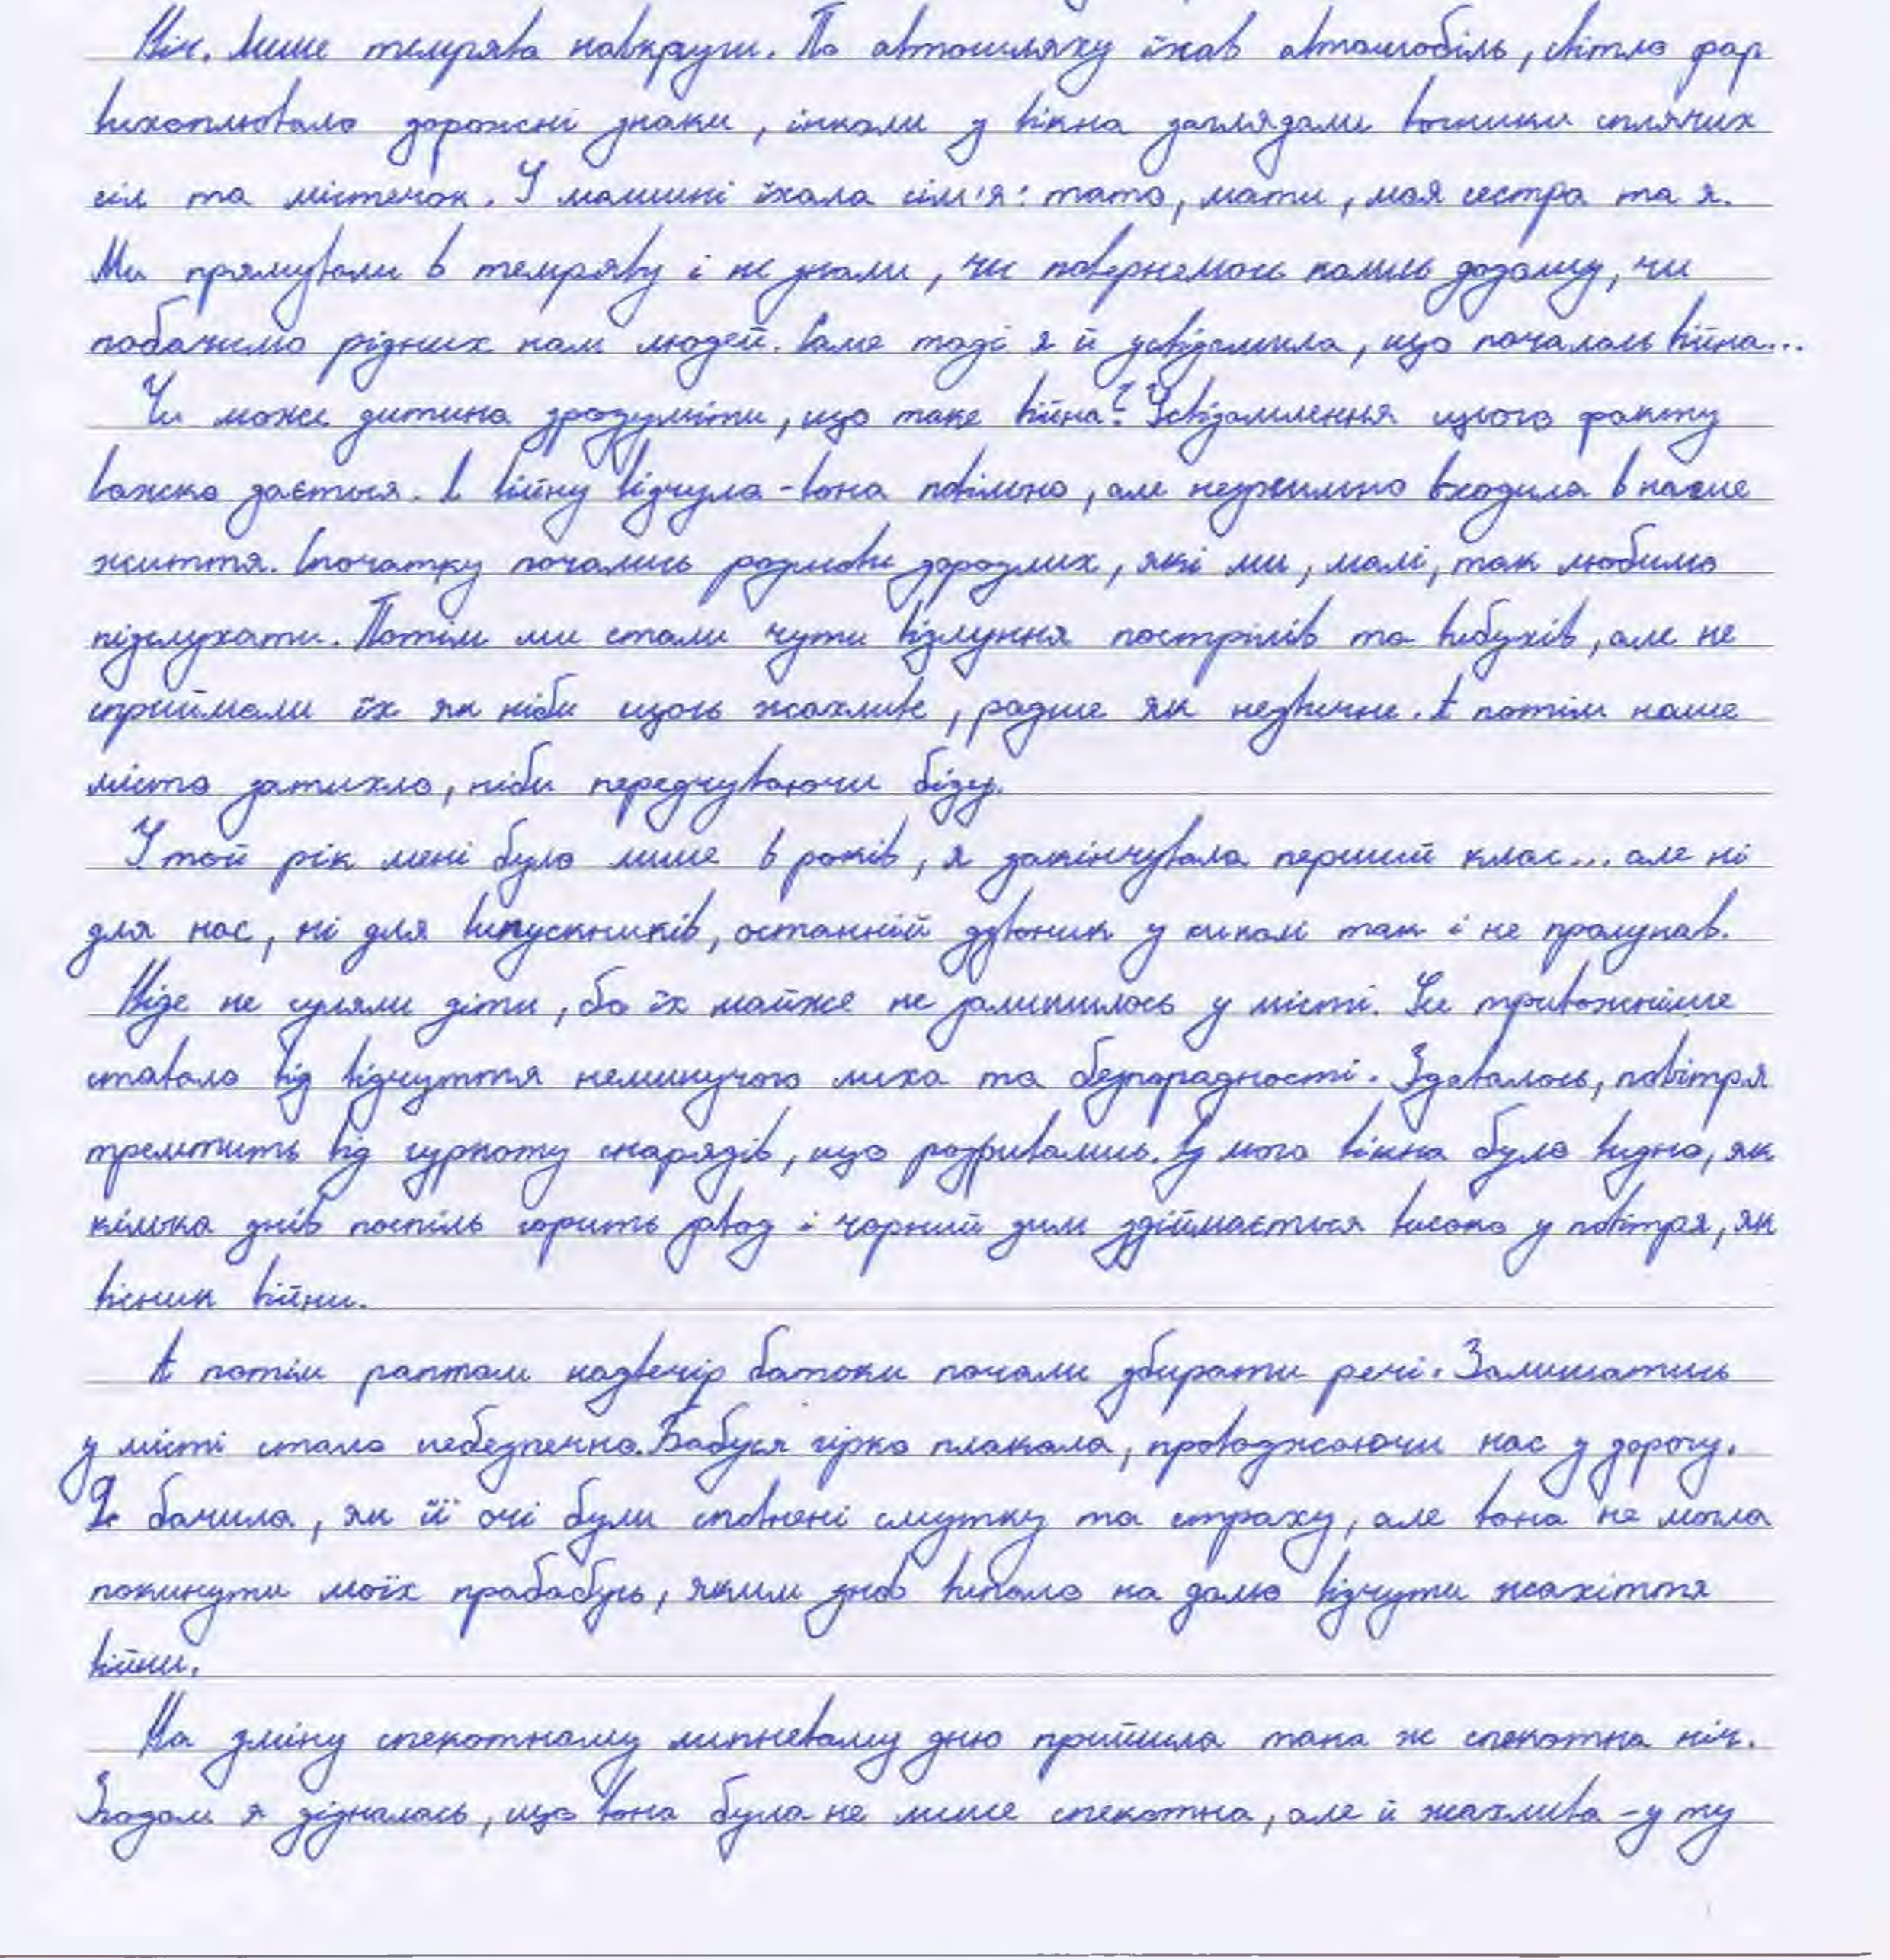 Ніч. Лише темрява навкруги. По автошляху їхав автомобіль, світло фар
вихоплювало дорожні знаки, інколи у вікна заглядали вогники сплячих
сіл та містечок. У машині їхала сім'я: тато, мати, моя сестра та я.
Ми прямували в темряву і не знали, чи повернемось колись додому, чи
побачимо рідних нам людей. Саме тоді я й усвідомила, що почалась війна...
Чи може дитина зрозуміти, що таке війна? Усвідомлення цього факту
важко дається. Я війну відчула - вона повільно, але невпинно входила в наше
життя. Спочатку почались розмови дорослих, які ми, малі, так любимо
підслухати. Потім ми стали чути відлуння пострілів та вибухів, але не
сприймали їх як ніби щось жахливе, радше як незвичне. А потім наше
місто затихло, ніби передчуваючи біду.
У той рік мені було лише 6 років, я закінчувала перший клас... але ні
для нас, ні для випускників, останній дзвоник у школі так і не пролунав.
Ніде не гуляли діти, бо їх майже не залишилось у місті. Ще тривожніше
ставало від відчуття неминучого лиха та безпорадності. Здавалось, повітря
тремтить від гуркоту снарядів, що розривались. Із мого вікна було видно, як
кілька днів поспіль горить завод і чорний дим здіймається високо у повітря, як
вісник війни.
А потім раптом надвечір батьки почали збирати речі. Залишатись
у місті стало небезпечно. Бабуся гірко плакала, проводжаючи нас у дорогу.
Я бачила, як її очі були сповнені смутку та страху, але вона не могла
покинути моїх прабабусь, яким знов випало на долю відчути жахіття
війни.
На зміну спекотному липневому дню прийшла така ж спекотна ніч.
Згодом я дізналась, що вона була не лише спекотна, але й жахлива - у ту